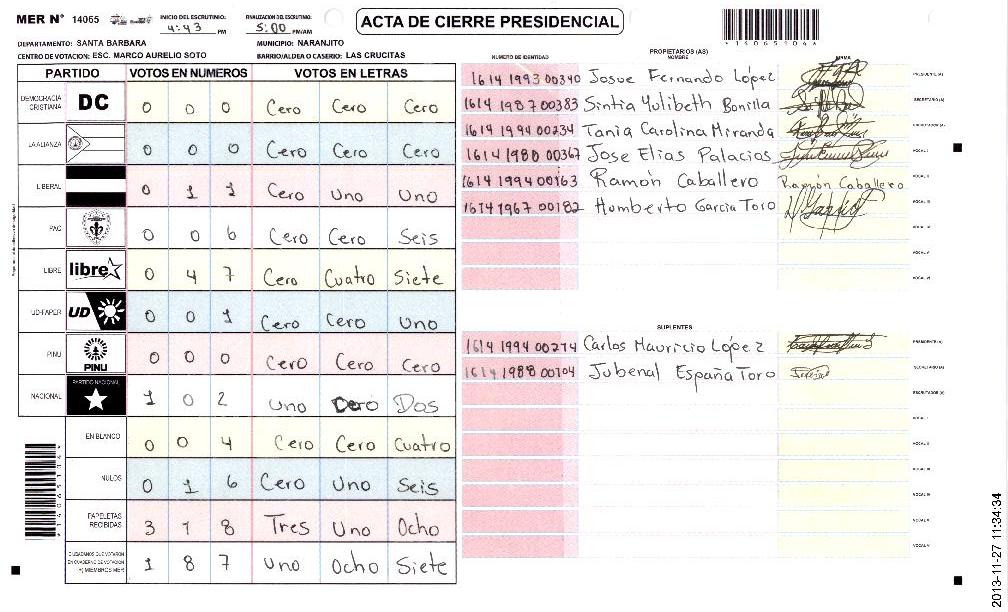 MER N° 14065
INICIO DEL ESCRUTINIO: 4:43 PM
FINALIZACION DEL ESCRUTINIO: 5:00 PM/AM
ACTA DE CIERRE PRESIDENCIAL
DEPARTAMENTO: SANTA BARBARA
MUNICIPIO: NARANJITO
CENTRO DE VOTACION: ESC. MARCO AURELIO SOTO
BARRIO/ALDEA O CASERIO: LAS CRUCITAS
PARTIDO VOTOS EN NUMEROS VOTOS EN LETRAS
DEMOCRACIA CRISTIANA DC 0 0 0 Cero Cero Cero
LA ALIANZA 0 0 0 Cero Cero Cero
LIBERAL 0 1 1 Cero Uno Uno
PAC 0 0 6 Cero Cero Seis
LIBRE libre 0 4 7 Cero Cuatro Siete
UD-FAPER UD 0 0 1 Cero Cero Uno
PINU PINU 0 0 0 Cero Cero Cero
NACIONAL PARTIDO NACIONAL 1 0 2 Uno Cero Dos
EN BLANCO 0 0 4 Cero Cero Cuatro
NULOS 0 1 6 Cero Uno Seis
PAPELETAS RECIBIDAS 3 1 8 Tres Uno Ocho
CIUDADANOS QUE VOTARON EN CUADERNO DE VOTACION 1 8 7 Uno Ocho Siete
PROPIETARIOS (AS)
NUMERO DE IDENTIDAD NOMBRE FIRMA
1614 1993 00340 Josue Fernando López PRESIDENTE (A)
1614 1987 00383 Sintia Yulibeth Bonilla SECRETARIO (A)
1614 1994 00234 Tania Carolina Miranda ESCRUTADOR (A)
1614 1980 00367 Jose Elias Palacios VOCAL I
1614 1994 00163 Ramón Caballero Ramón Caballero VOCAL II
1614 1967 00182 Humberto Garcia Toro VOCAL III
VOCAL IV
VOCAL V
VOCAL VI
SUPLENTES
1614 1994 00274 Carlos Mauricio López PRESIDENTE (A)
1614 1988 00104 Jubenal España Toro SECRETARIO (A)
ESCRUTADOR (A)
VOCAL I
VOCAL II
VOCAL III
VOCAL IV
VOCAL V
2013-11-27 11:34:34